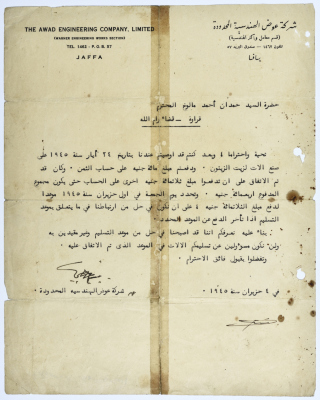 THE AWAD ENGINEERING COMPANY, LIMITED
(WAGNER ENGINEERING WORKS SECTION)
TEL 1485 - P.O.B. 57
JAFFA
شركة عوض الهندسية المحدودة
(قسم معامل واگنر الهندسية)
تلفون ١٤٨٥ - صندوق البريد ٥٧
يافا
حضرة السيد حمدان أحمد المحترم
قراوة - قضاء رام الله
تحية واحتراما وبعد كنتم قد اوصيتم عندنا بتاريخ ٢٤ أيار سنة ١٩٤٥ على
صنع الات لزيت الزيتون . ودفعتم مبلغ مائة جنيه على الحساب من الثمن . وكان قد
تم الاتفاق على ان تدفعوا مبلغ ثلاثمائة جنيه اخرى على الحساب حتى يكون مجموع
المدفوع اربعمائة جنيه . وتحدد يوم الجمعة في اول حزيران سنة ١٩٤٥ موعدا
لدفع مبلغ الثلاثمائة جنيه على ان نكون في حل من ارتباطنا في ما يتعلق بموعد
التسليم اذا تأخر الدفع عن الموعد المحدد.
بناء عليه نعرفكم اننا قد اصبحنا في حل من موعد التسليم وغير مقيدين به
ولن نكون مسؤولين عن تسليمكم الالات في الموعد الذى تم الاتفاق عليه .
وتفضلوا بقبول فائق الاحترام .
عن شركة عوض الهندسية المحدودة .
في ٤ حزيران سنة ١٩٤٥